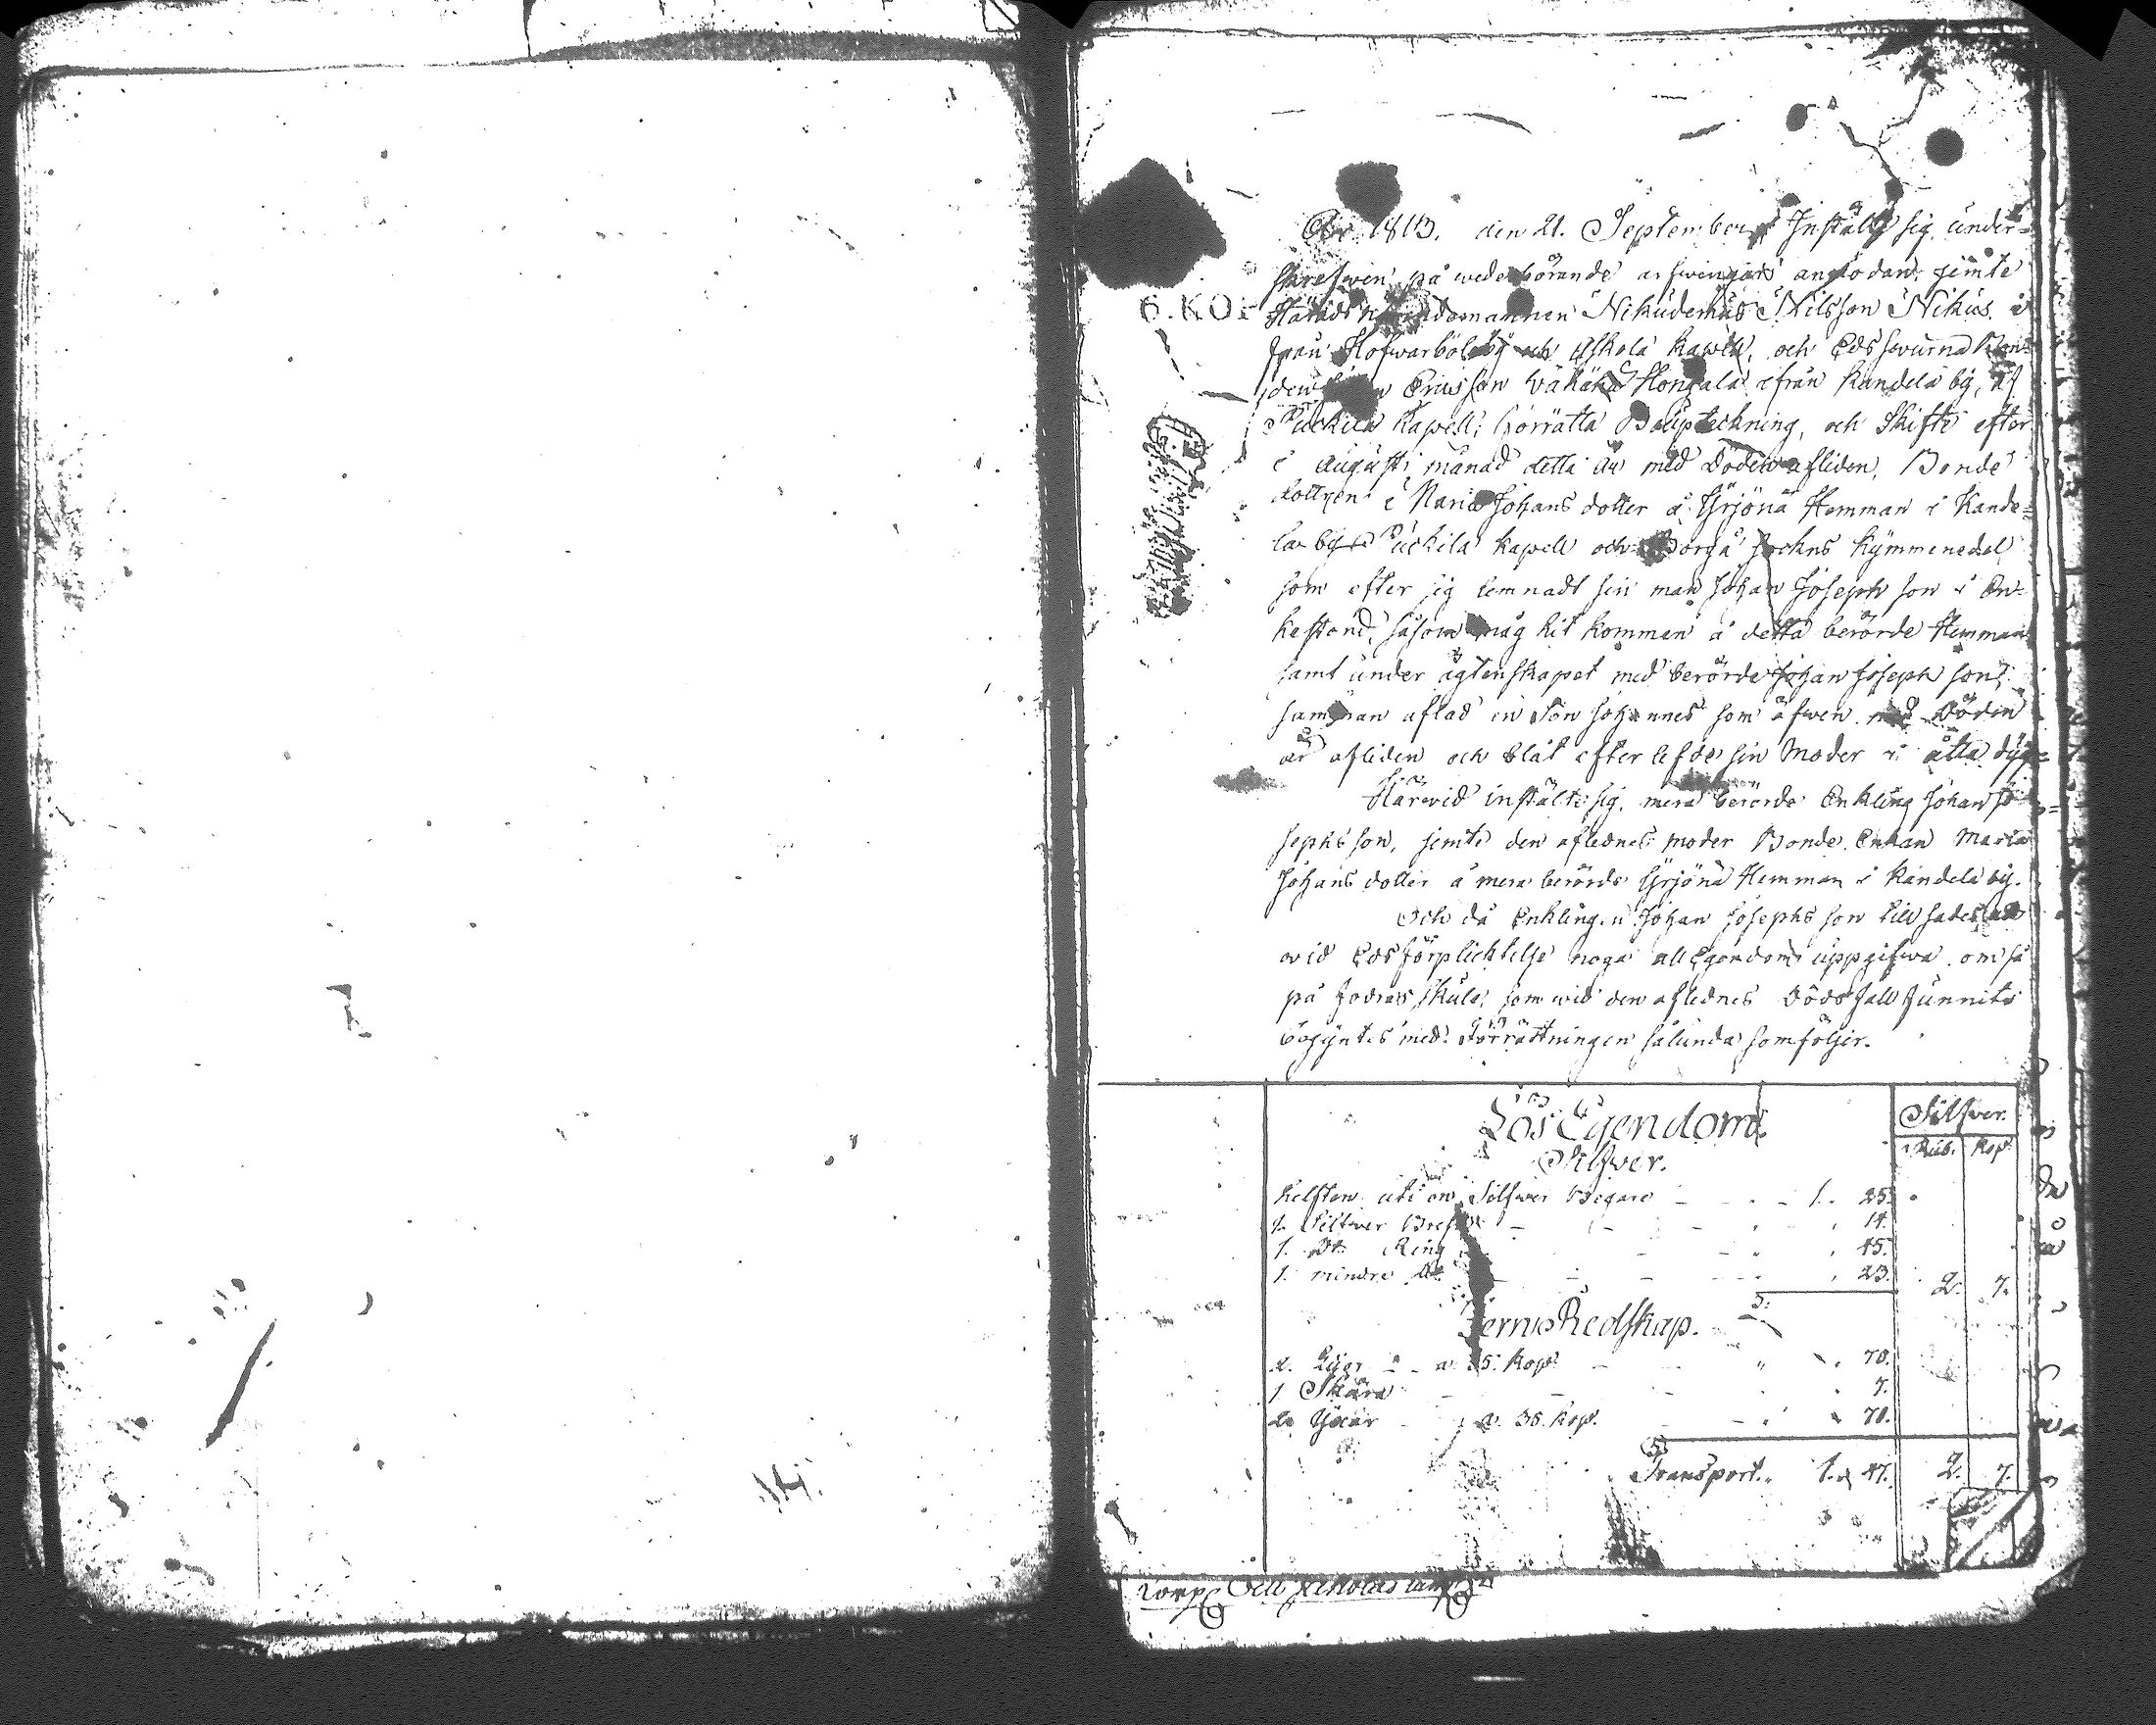 År 1813. den 21. September Instälte sig under-
skrefwen på wederbörande arfwingars anmodan jemte
6. KO
Härads nämdemannen Nikudemus Nilsson Nikus i
från Hofwarböle by och Askola Kapell, och Edssvurna
den Ericsson Wähä Hongala ifrån Kandela by, af
Puckila Kapell, förrätta Bouptekning, och Skifte efter
i Augusti månad detta år med Döden afliden, Bonde
dottren Maria Johans dotter å Yrjönä Hemman i Kande-
la by Puckila Kapell och Borgå Sockns Kymmenedel
som efter sig lemnadt sin man Johan Josephson i En-
kestånd, såsom måg hit kommen å detta berörde Hemman
samt under ägtenskapet med berörde Johan Josephson,
samman aflad en Son Johannes som äfwen med Döden
är afliden och blåt efterlefde sin Moder i åtta dyg-
Härwid instälte sig, mera berörde Enkling Johan Jo-
sephsson, jemte den aflednes moder Bonde Enkan Maria
Johans dotter å mera berörde Yrjönä Hemman i Kandela by.
Och då Enklingen Johan Josephsson tillsades att
wid Edsförplichtelse noga all Egendom uppgifwa om så
på fodras skule, som wid den aflednes Dödsfall funnits
begyntes med Förrättningen sålunda som följer.
Lös Egendom Silfver.
Silfwer. Rub. Kop
Helften uti en Silfwer Begare 1. 25.
1. Silfwer Bres 14.
1. Dt Ring 45.
1. mindre Dt 23. 2. 7.
Jern Redskap.
2. Lijor a 35. Kop 70.
1 Skära 7.
2 Yxor a. 35. Kop. 70.
Transport. 1. 47. 2. 7.